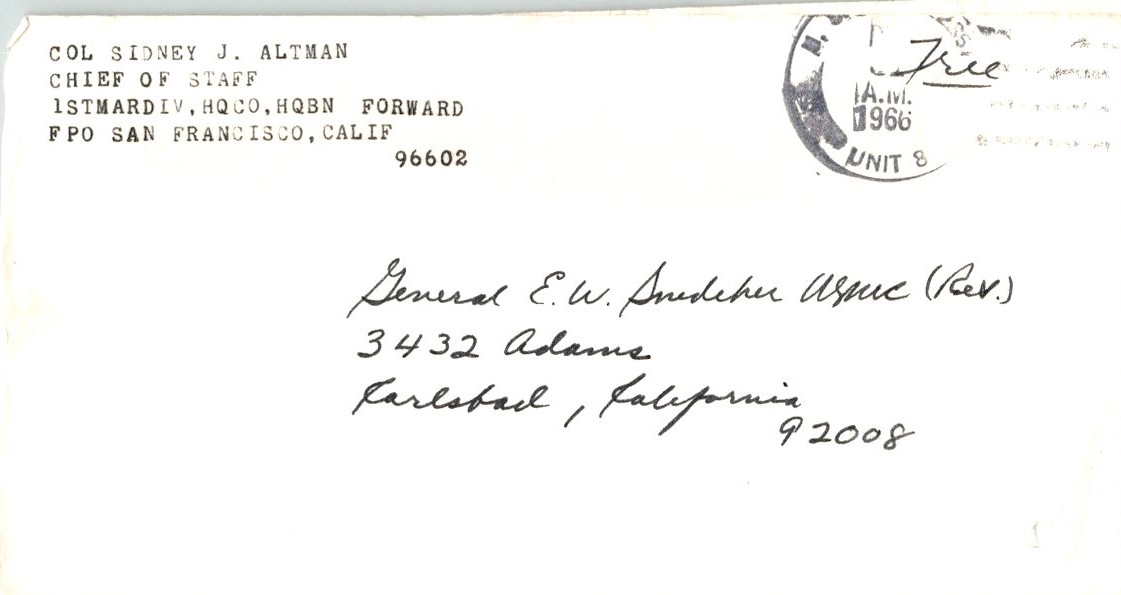 COL SIDNEY J. ALTMAN
CHIEF OF STAFF
1STMARDIV,HQCO,HQBN FORWARD
FPO SAN FRANCISCO,CALIF
96602
Free
A.M.
1966
UNIT 8
General E. W. Snedeker USMC (Ret.)
3432 Adams
Carlsbad, California
92008